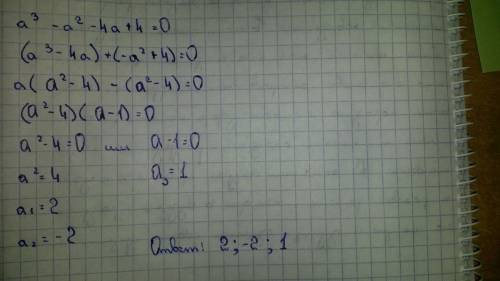 a³ - a² - 4a + 4 = 0
(a³ - 4a) + (-a² + 4) = 0
a(a² - 4) - (a² - 4) = 0
(a² - 4)(a - 1) = 0
a² - 4 = 0 или a - 1 = 0
a² = 4 a₃ = 1
a₁ = 2
a₂ = -2 Ответ: 2; -2; 1